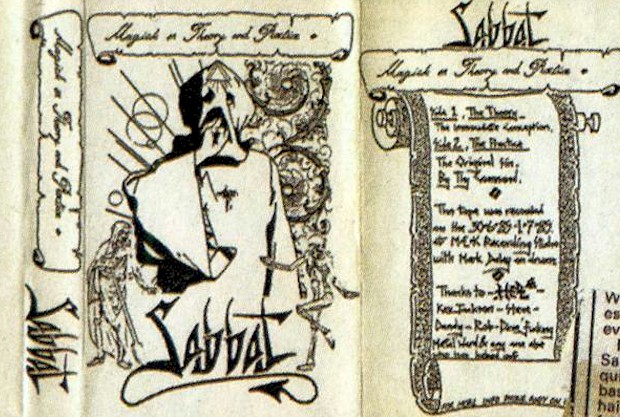 Magick in Theory and Practice
Sabbat
Magick in Theory and Practice
Sabbat
Sabbat
Magick in Theory and Practice
Side 1, The Theory
The Immaculate Conception.
Side 2, The Practice
The Original Sin.
By Thy Command.
This tape was recorded
on the 30·6·85-1·7·85.
at MEK Recording Studio
with Mark Daley on drums.
Thanks to -
- Steve -
Dandy - Rob - Dave, fucking
Metal Nerd & any one else
who has helped out.
W
es
ev
Sa
qui
bas
hai